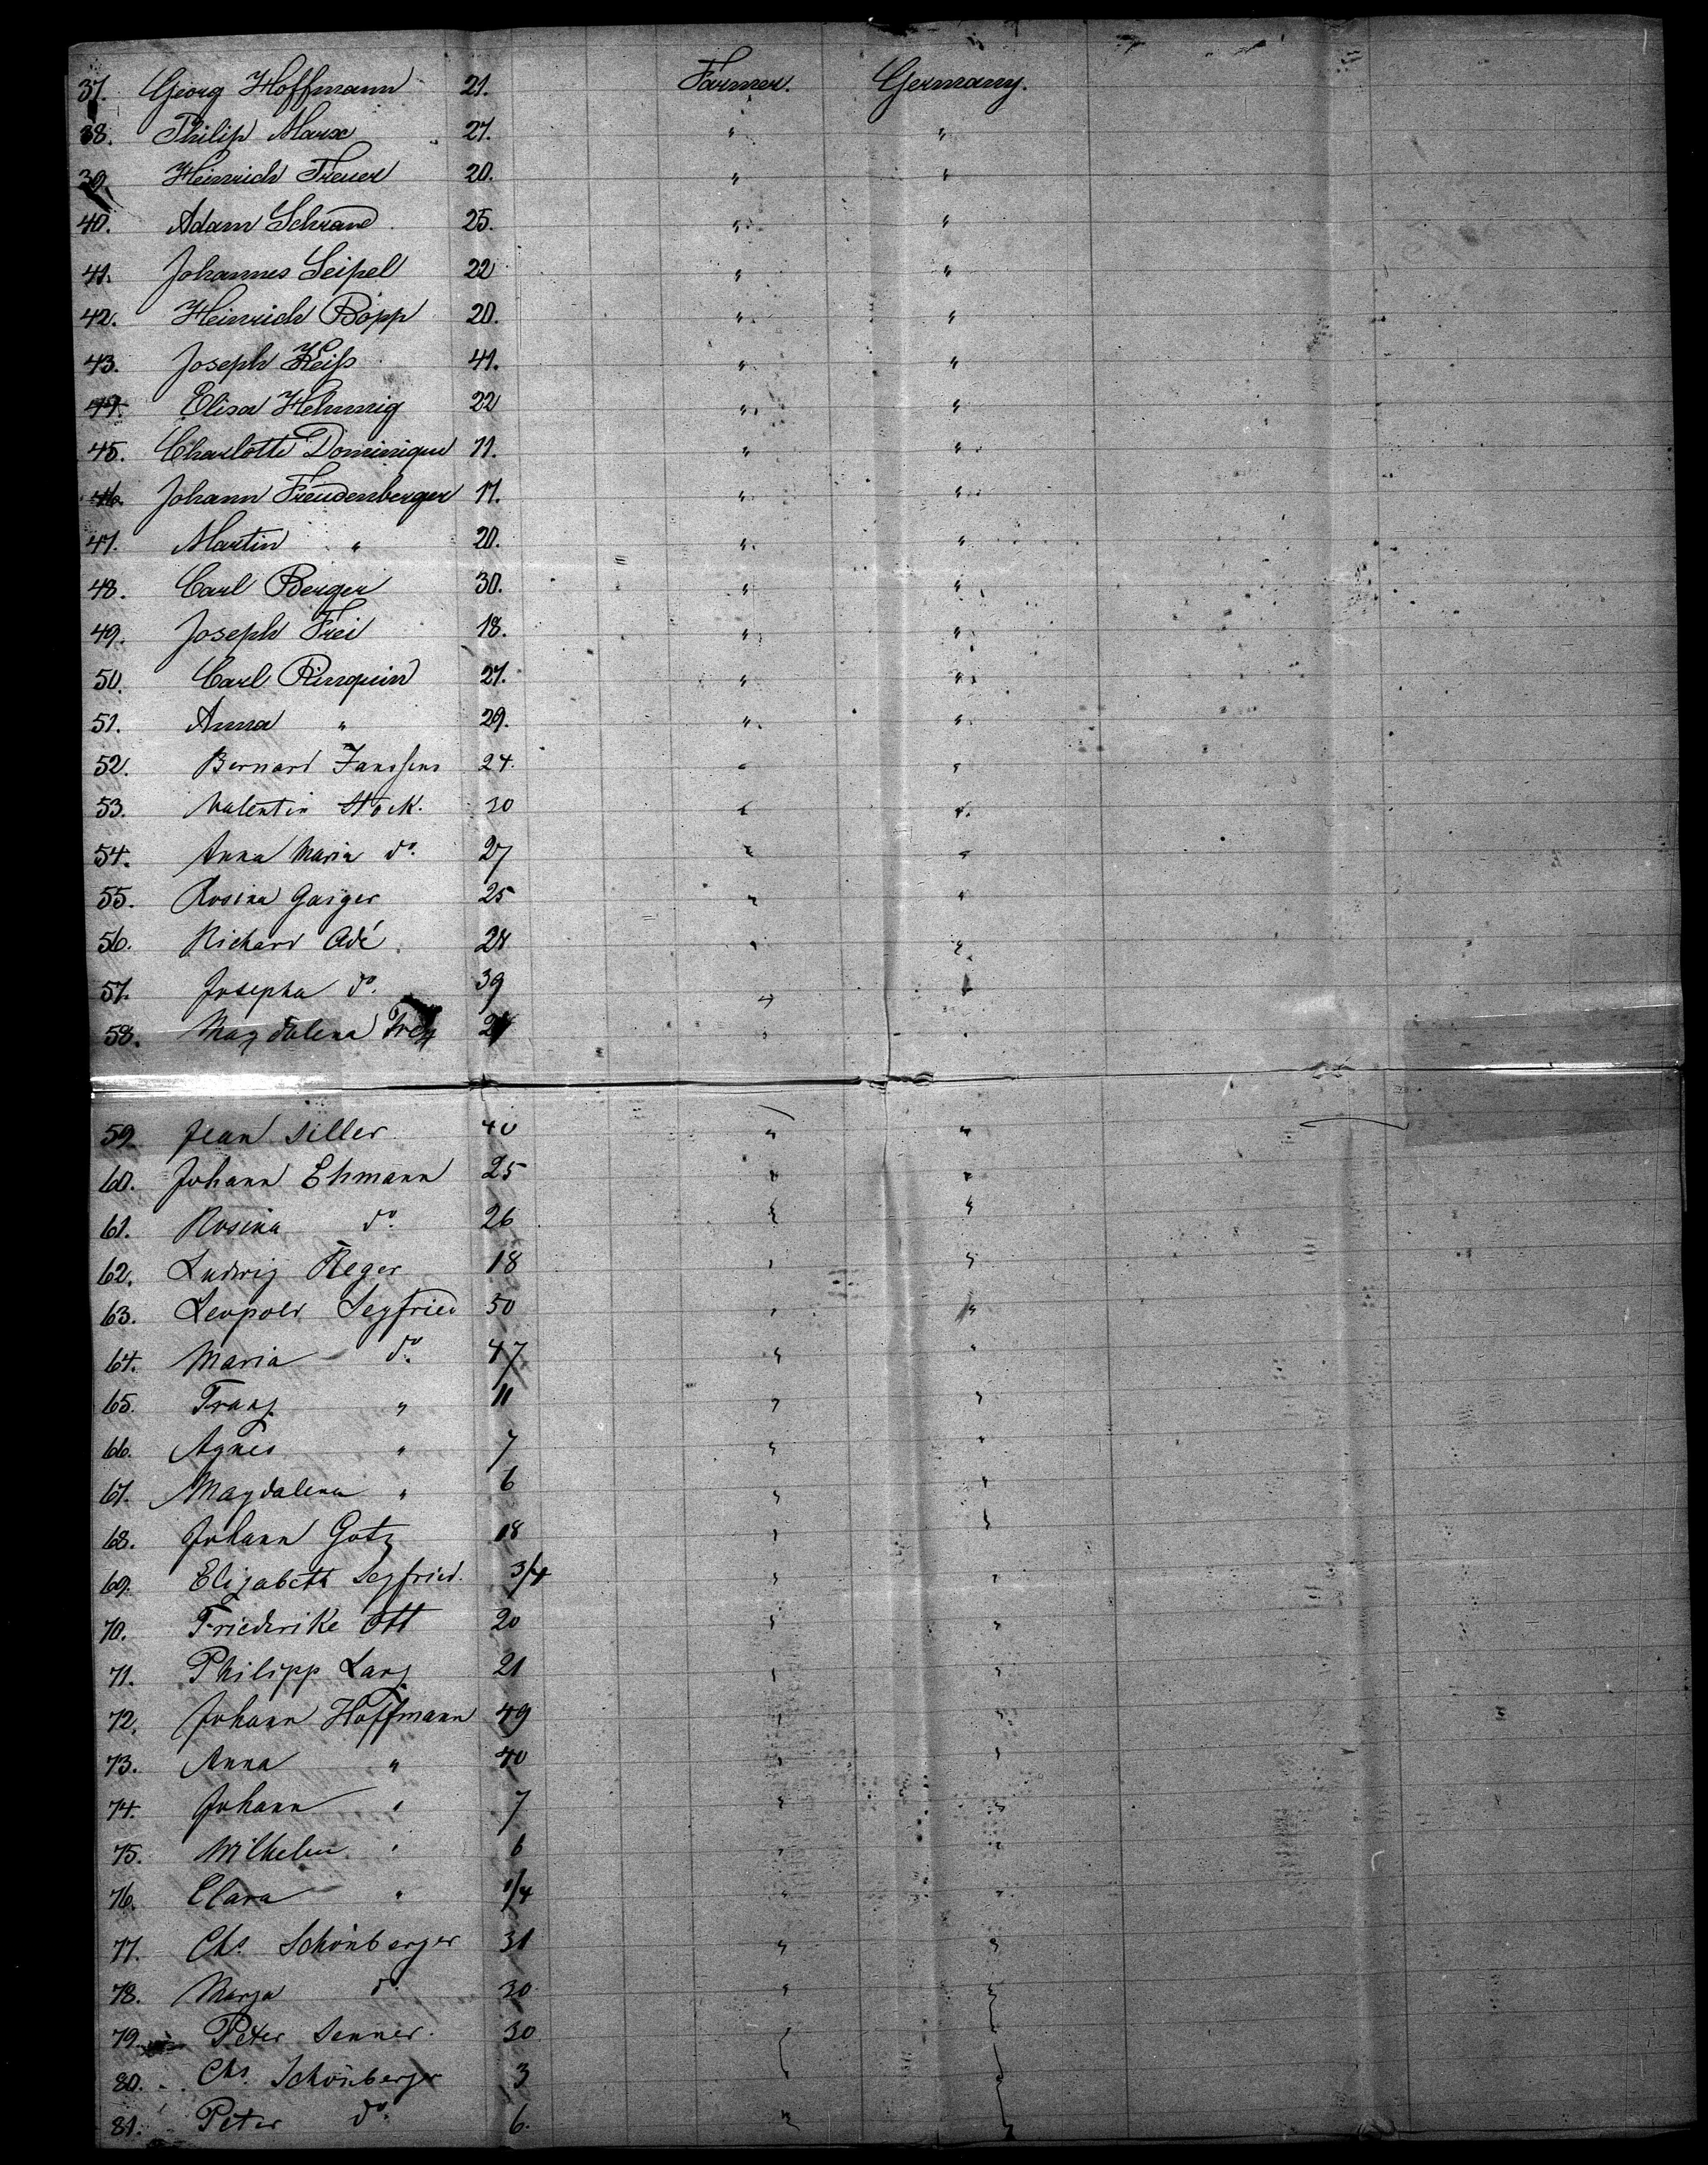 37. Georg Hoffmann 21. Farmer. Germany.
38. Philip Marx 27. " "
39. Heinrich Freuer 20. " "
40. Adam Schrand 25. " "
41. Johannes Seipel 22 " "
42. Heinrich Böpp 20. " "
43. Joseph 41. " "
44. Elisa Helmnig 22 " "
45. Charlotte Dominique 11. " "
46. Johann Freudenberger 17. " "
47. Martin " 20. " "
48. Carl Berger 30. " "
49. Joseph Frei 18. " "
50. Carl Rinquin 27. " "
51. Anna " 29. " "
52. Bernard Janssens 24. " "
53. Valentin Stock. 30 " "
54. Anna Maria do. 27 " "
55. Rosina Gaiger 25 " "
56. Richard Adé 28 " "
57. Josepha do. 39 " "
58. Magdalena " "
59. Jean Siller 40 " "
60. Johann Ehmann 25 " "
61. Rosina do. 26 " "
62. Ludwig Reger 18 " "
63. Leopold Segfried 50 " "
64. Maria do. 47 " "
65. Franz " 11 " "
66. Agnes " 7 " "
67. Magdalena " 6 " "
68. Johann Gotz 18 " "
69. Elizabeth Segfried. 3/4 " "
70. Friederike Ott 20 " "
71. Philipp Lang 21 " "
72. Johann Hoffmann 49 " "
73. Anna " 40 " "
74. Johann " 7 " "
75. Wilhelm " 6 " "
76. Clara " 1/4 " "
77. Chs. Schönberger 31 " "
78. Marya do. 30 " "
79. Peter Senner. 30 " "
80. Chs. Schönberger 3 " "
81. Peter do. 6. " "